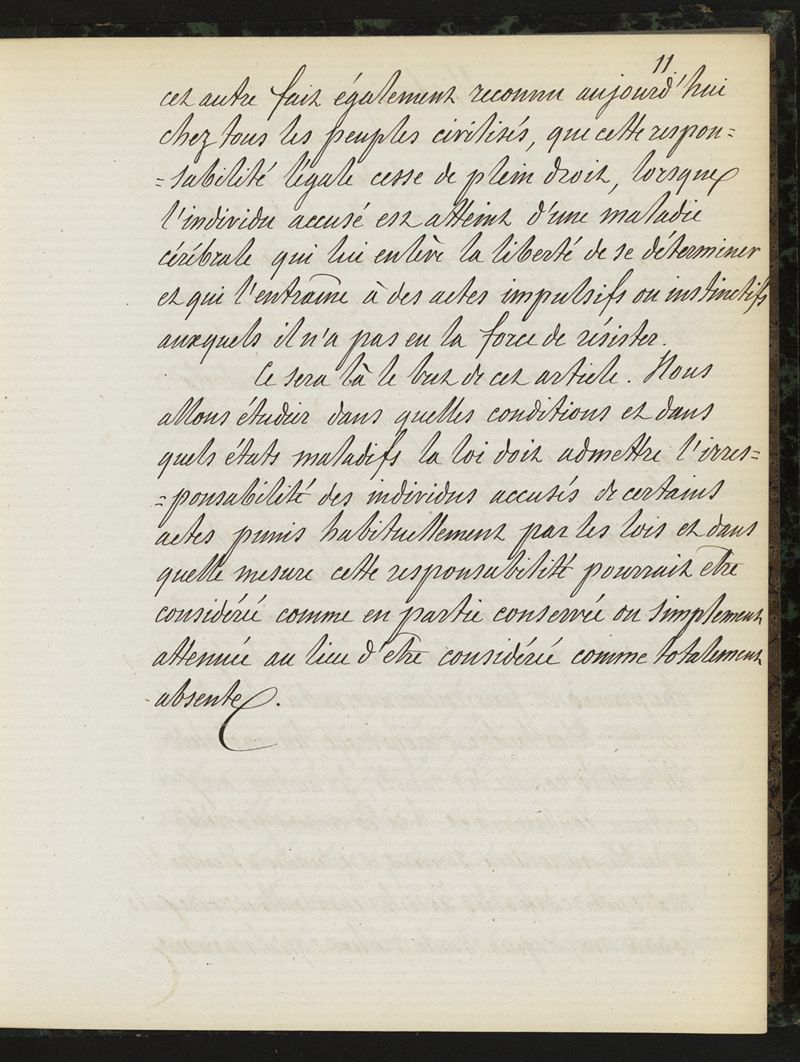 11
cet autre fait également reconnu aujourd'hui
chez tous les peuples civilisés, que cette respon=
=sabilité légale cesse de plein droit, lorsque
l'individu accusé est atteint d'une maladie
cérébrale qui lui enlève la liberté de se déterminer
et qui l'entraîne à des actes impulsifs ou instinctifs
auxquels il n'a pas eu la force de résister.
Ce sera là le but de cet article. Nous
allons étudier dans quelles conditions et dans
quels états maladifs la loi doit admettre l'irres=
=ponsabilité des individus accusés de certains
actes punis habituellement par les lois et dans
quelle mesure cette responsabilité pourrait être
considérée comme en partie conservée ou simplement
attenuée au lieu d'être considérée comme totalement
absente.